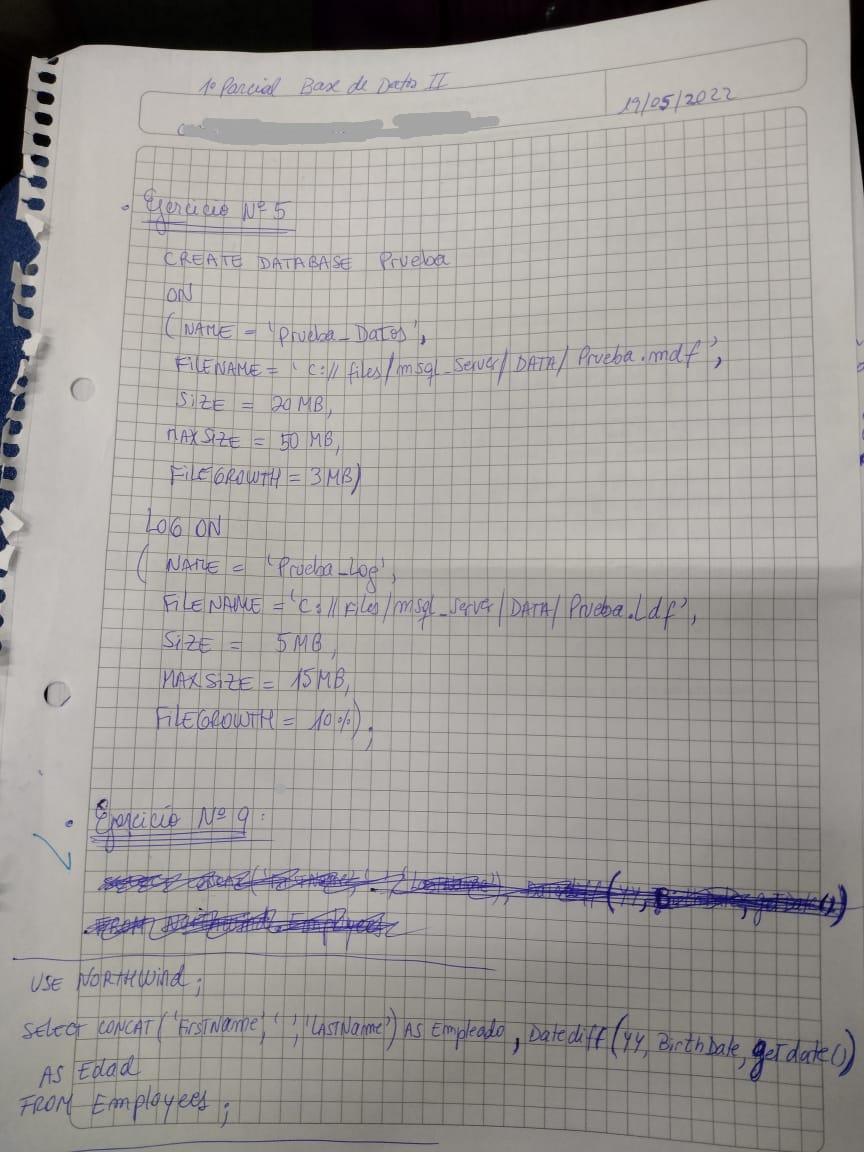 1º Parcial Base de Datos II
19/05/2022
• Ejercicio Nº 5
CREATE DATABASE Prueba
ON
( NAME = 'Prueba_Datos',
FILENAME = 'C:// files/msql_Server/DATA/Prueba.mdf',
SIZE = 20 MB,
MAXSIZE = 50 MB,
FILEGROWTH = 3MB)
LOG ON
( NAME = 'Prueba_Log',
FILENAME = 'C://Files/msql_Server/DATA/Prueba.Ldf',
SIZE = 5MB,
MAXSIZE = 15MB,
FILEGROWTH = 10%);
• Ejercicio Nº 9:
(YY,
USE NORTHWind;
Select CONCAT('FirstName',' ','LASTName') AS Empleado, Datediff(YY, BirthDate, getdate())
AS Edad
FROM Employees;